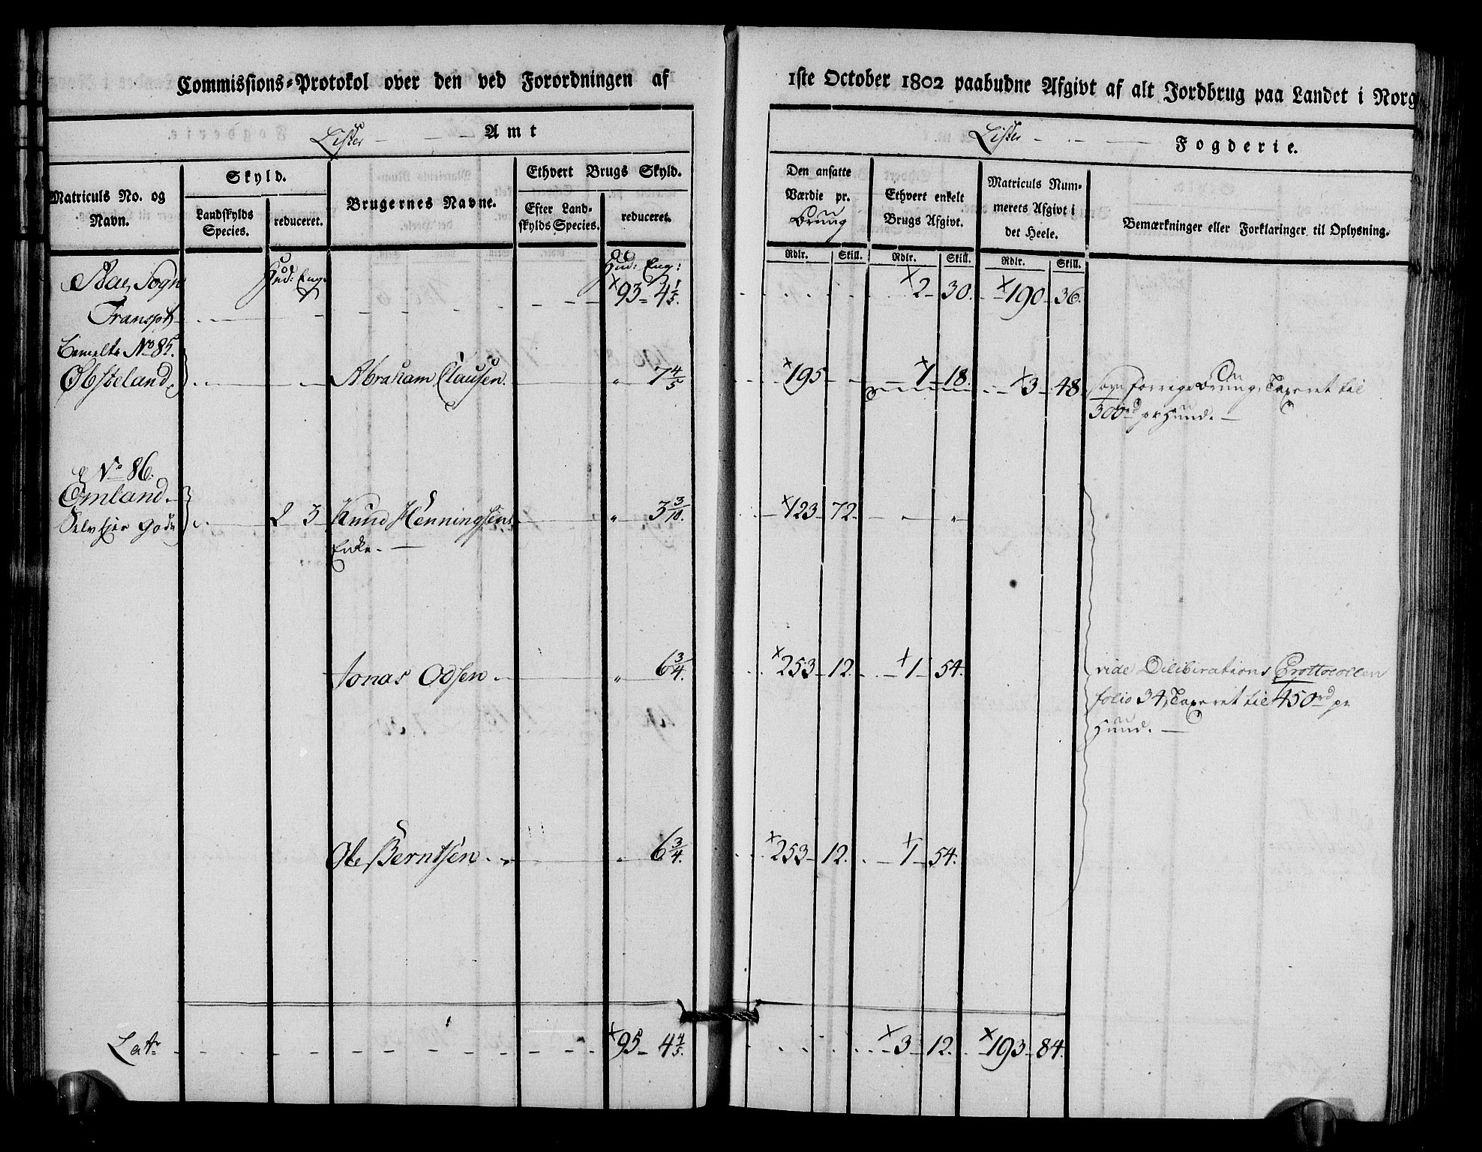 Commissions-Protokol over den ved Forordningen af 1ste October 1802 paabudne Afgivt af alt Jordbrug paa Landet i Norg
Lister Amt
Lister Fogderie.
Matriculs No. og Navn.
Skyld.
Landskylds Species.
reduceret.
Brugernes Navne.
Ethvert Brugs Skyld.
Efter Landskylds Species.
reduceret.
Den ansatte Værdie pr. Bruug
Ethvert enkelt Brugs Afgivt.
Matriculs Nummerets Afgivt i det Heele.
Bemærkninger eller Forklaringer til Oplysning.
Rdlr. Skill. Rdlr. Skill. Rdlr. Skill.
Hud: Eng: Hud: Eng:
Sogn
Transpt 93 4 1/5. 2 30. 190 36.
Bemelte No 85.
Obsteland Abraham Clausen " 7 4/5 195 1 18. 3 48. som forrige Bruug, Taxeret til
300rd pr Hund.
No 86.
Omland
Selveier Gods 2 3 Knud Henningsens " 3 3/10. 123 72. "
Enke.
Jonas Odsen " 6 3/4. 253 12. 1 54. vide Deliberations Prottocollen
folio 34, Taxeret til 450rd pr
Hund.
Ole Berntsen " 6 3/4. 253 12. 1 54.
Latr 95 4 4/5. 3 12. 193 84.